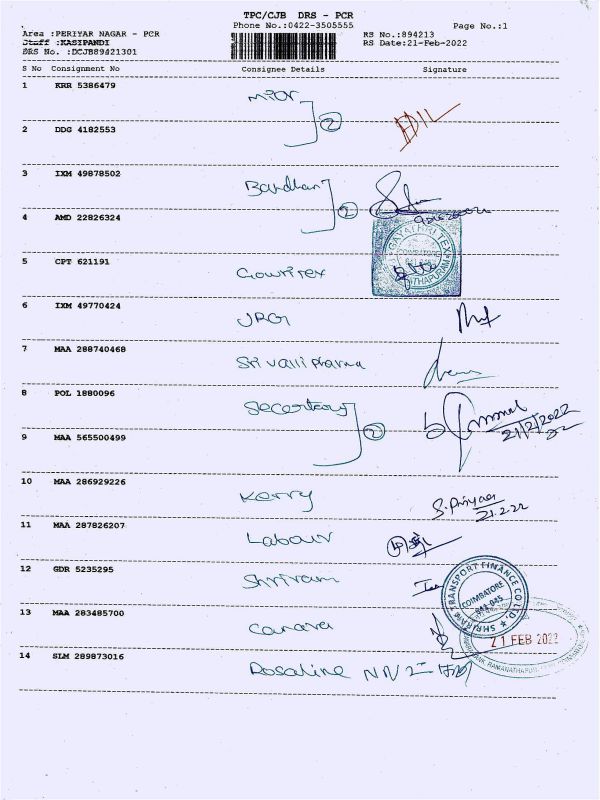 TPC/CJB DRS - PCR
Phone No.:0422-3505555 Page No.:1
Area :PERIYAR NAGAR - PCR RS No.:894213
Staff :KASIPANDI RS Date:21-Feb-2022
DRS No. :DCJB89421301
S No Consignment No Consignee Details Signature
1 KRR 5386479
2 DDG 4182553 2
3 IXM 49878502 Bandhan
4 AMD 22826324 2
GAYATHRI TEX
COIMBATORE
5 CPT 621191 Gowritex
6 IXM 49770424 JRG
7 MAA 288740468 Sri valli pharma
8 POL 1880096
21/2/2022
9 MAA 565500499 2
10 MAA 286929226 Kerry S. Priyaa
21.2.22
11 MAA 287826207 Labour
12 GDR 5235295 Shriram
SHRIRAM TRANSPORT FINANCE CO. LTD.
COIMBATORE
641 045
13 MAA 283485700 Canara
21 FEB 2022
14 SLM 289873016 Rosaline